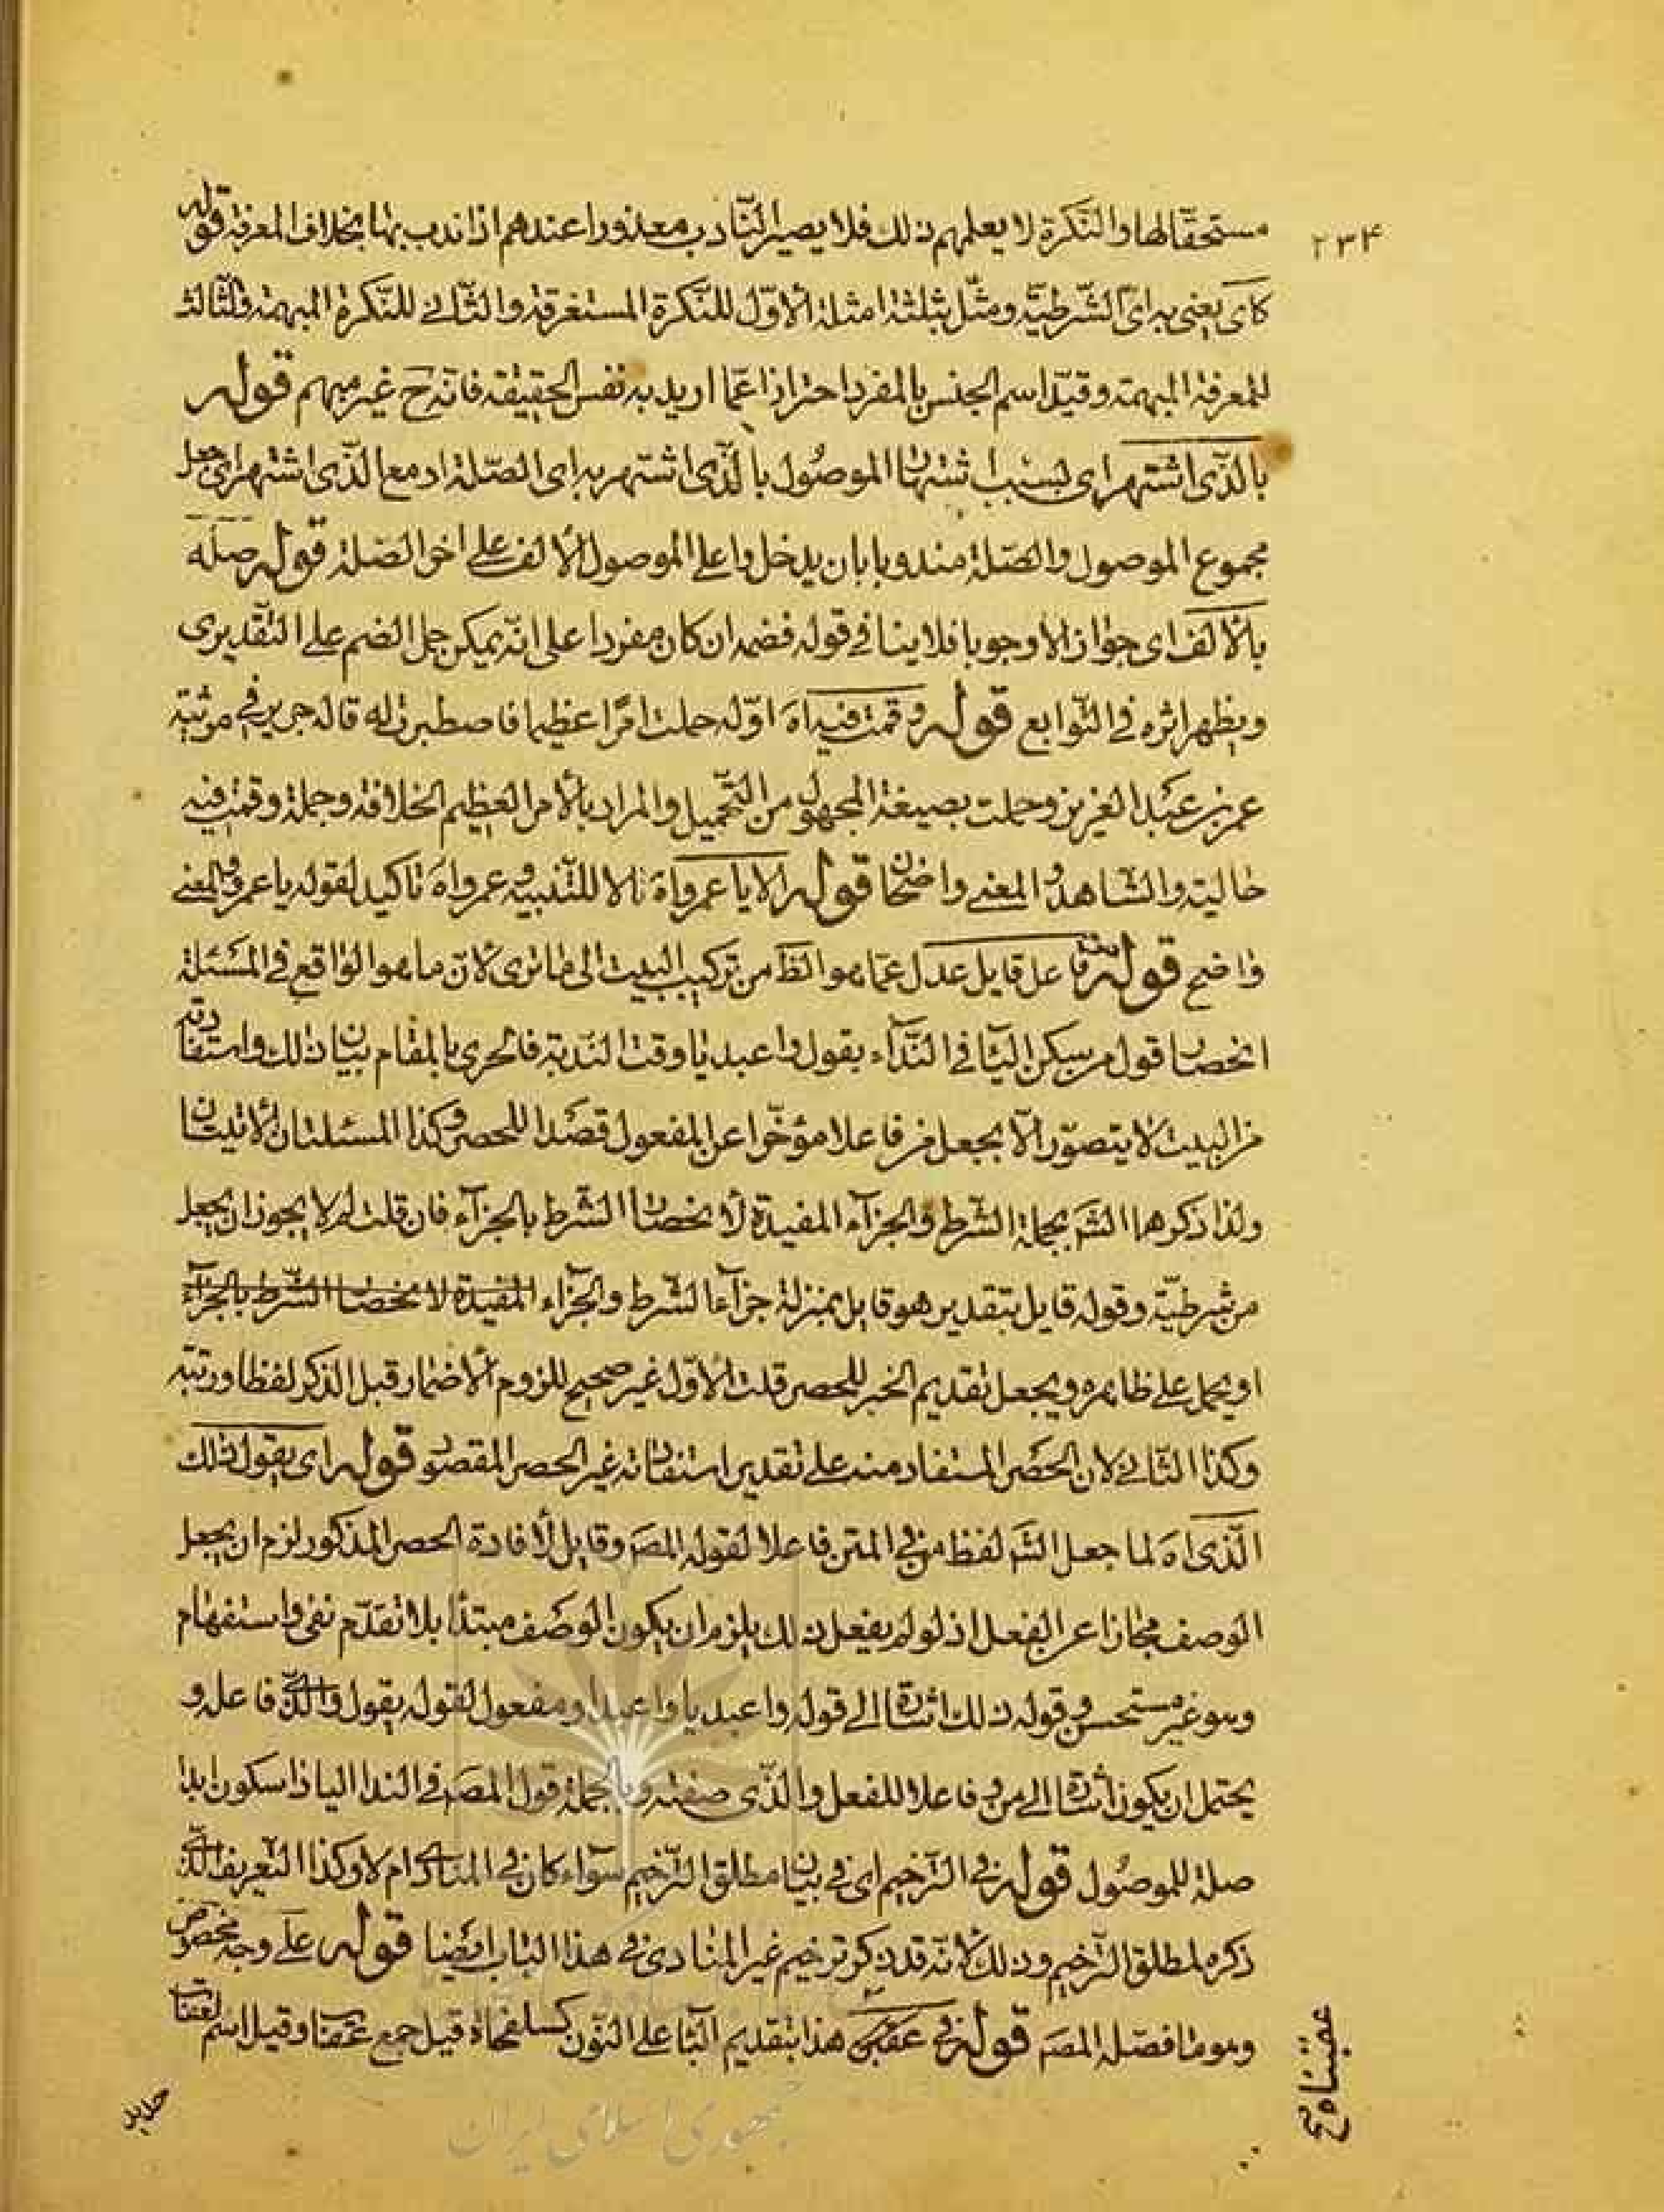 ٢٣۴
مستحقّا لها والنّكرة لا يعلمهم ذلك فلا يصير النّادب معذورا عندهم اذا ندب بها بخلاف المعرفة قوله
كاى يعنى به اىّ الشّرطيّة ومثّل بثلثة امثلة الاوّل للنّكرة المستغرقة والثّانى للنّكرة المبهمة والثّالث
للمعرفة المبهمة وقيّد اسم الجنس بالمفرد احترازا عمّا اريد به نفس الحقيقة فانّه ح غير مبهم قوله
بالّذى اشتهر اى بسبب اشتهار الموصول بالّذى اشتهر به اى الصّلة او مع الّذى اشتهر اى يجعل
مجموع الموصول والصّلة مندوبا بان يدخل وا على الموصول والالف على اخر الصّلة قوله صله
بالالف اى جوازا لا وجوبا فلا ينافى قوله فضمه ان كان مفردا على انّه يمكن حمل الضم على التّقديرى
ويظهر اثره فى التّوابع قوله وقمت فيه اه اوّله حملت امرا عظيما فاصطبرت له قاله جرير فى مرثية
عمر بن عبد العزيز وحملت بصيغة المجهول من التّحميل والمراد بالامر العظيم الخلافة وجملة وقمت فيه
حالية والشّاهد والمعنى واضحان قوله الا يا عمرواه الا للتّنبيه وعمرواه تاكيد لقوله يا عمرو والمعنى
واضح قوله فاعل قايل عدل عمّا هو الظّ من تركيب البيت الى ما ترى لانّ ما هو الواقع فى المسئلة
انحصار قول من سكن اليا فى النّدآء بقول وا عبديا وقت النّدبة فالحرى بالمقام بيان ذلك واستفادته
من البيت لا يتصوّر الّا بجعل من فاعلا مؤخّرا عن المفعول قصدا للحصر وكذا المسئلتان الاتيتان
ولذا ذكرهما الشّر بجملة الشّرط والجزآء المفيدة لانحصار الشّرط بالجزآء فان قلت لم لا يجوز ان يجعل
من شرطيّة وقوله قايل بتقدير هو قايل بمنزلة جزآء الشّرط والجزاء المفيدة لانحصار الشّرط بالجزآء
او يحمل على ظاهره ويجعل تقديم الخبر للحصر قلت الاوّل غير صحيح للزوم الاضمار قبل الذكر لفظا ورتبة
وكذا الثّانى لان الحصر المستفاد منه على تقدير استفادته غير الحصر المقصود قوله اى يقول ذلك
الّذى اه لما جعل الشّر لفظ من فى المتن فاعلا لقول المصّ وقايل لافادة الحصر المذكور لزم ان يجعل
الوصف مجازا عن الفعل اذ لو لم يفعل ذلك يلزم ان يكون الوصف مبتدأ بلا تقدّم نفى واستفهام
وهو غير مستحسن وقوله ذلك اشارة الى قوله وا عبديا وا عبدا ومفعول لقوله يقول والّذى فاعله و
يحتمل ان يكون اشارة الى من وفاعلا للفعل والّذى صفته وبالجملة قول المصّ فى الندا اليا ذا سكون ابدا
صلة للموصول قوله فى التّرخيم اى فى بيان مطلق التّرخيم سوآء كان فى المنادى ام لا وكذا التّعريف الّذى
ذكره لمطلق التّرخيم وذلك لانّه قد ذكر ترخيم غير المنادى فى هذا الباب ايضا قوله على وجه مخصوص
وهو ما فصّله المصّ قوله فى عقبنى هذا بتقديم البا على النّون كسلنفاة قيل جمع عقنبا وقيل اسم
عقبناة